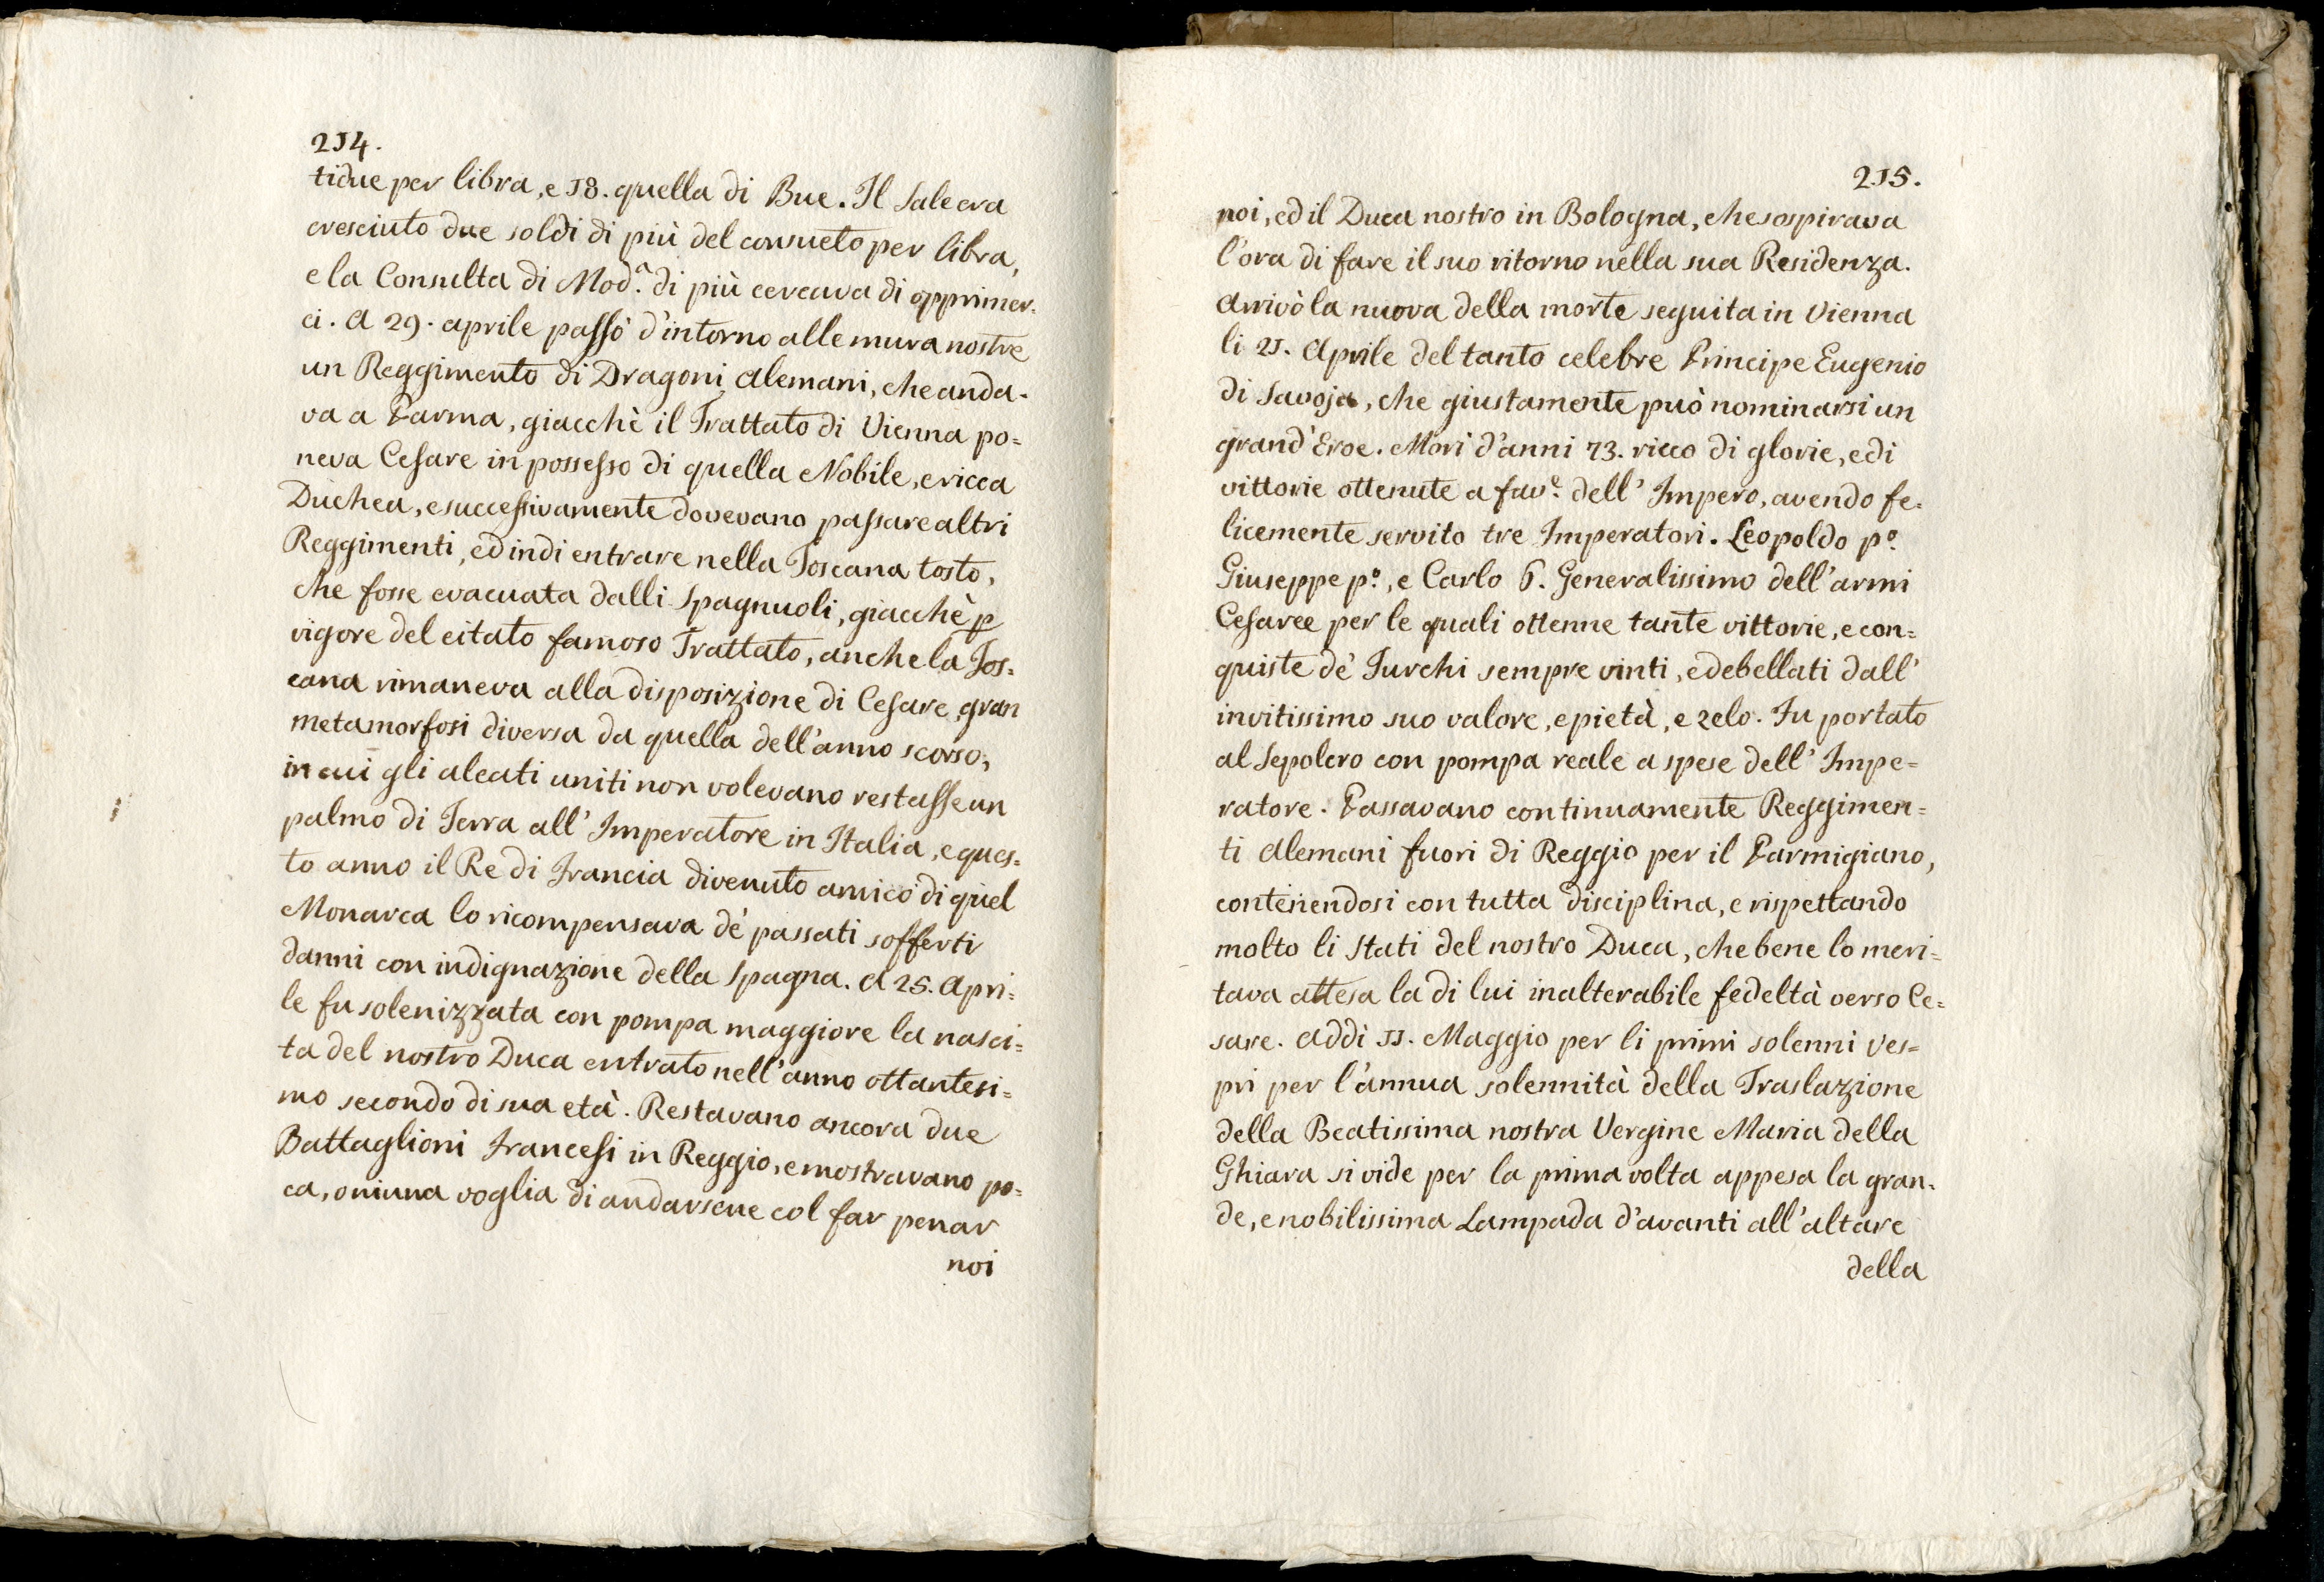 214.
tidue per libra, e 18. quella di Bue. Il Sale era
cresciuto due soldi di più del consueto per libra,
e la Consulta di Mod.ᵃ di più cercava di opprimer-
ci. A 29. aprile passò d'intorno alle mura nostre
un Reggimento di Dragoni Alemani, che anda-
va a Parma, giacchè il Trattato di Vienna po=
neva Cesare in possesso di quella Nobile, e ricca
Duchea, e successivamente dovevano passare altri
Reggimenti, ed indi entrare nella Toscana tosto,
che fosse evacuata dalli Spagnuoli, giacchè p
vigore del citato famoso Trattato, anche la Tos=
cana rimaneva alla disposizione di Cesare, gran
metamorfosi diversa da quella dell'anno scorso,
in cui gli aleati uniti non volevano restasse un
palmo di Terra all'Imperatore in Italia, e ques=
to anno il Re di Francia divenuto amico di quel
Monarca lo ricompensava de' passati sofferti
danni con indignazione della Spagna. A 25. Apri=
le fu solenizzata con pompa maggiore la nasci=
ta del nostro Duca entrato nell'anno ottantesi=
mo secondo di sua età. Restavano ancora due
Battaglioni Francesi in Reggio, e mostravano po=
ca, o niuna voglia di andarsene col far penar
noi
215.
noi, ed il Duca nostro in Bologna, che sospirava
l'ora di fare il suo ritorno nella sua Residenza.
Arrivò la nuova della morte seguita in Vienna
li 21. Aprile del tanto celebre Principe Eugenio
di Savoja, che giustamente può nominarsi un
grand'Eroe. Morì d'anni 73. ricco di glorie, e di
vittorie ottenute a fav.ᵉ dell'Impero, avendo fe-
licemente servito tre Imperatori. Leopoldo pº.
Giuseppe pº., e Carlo 6. Generalissimo dell'armi
Cesaree per le quali ottenne tante vittorie, e con=
quiste de' Turchi sempre vinti, e debellati dall'
invitissimo suo valore, e pietà, e zelo. Fu portato
al Sepolcro con pompa reale a spese dell'Impe=
ratore. Passavano continuamente Reggimen=
ti Alemani fuori di Reggio per il Parmigiano,
contenendosi con tutta disciplina, e rispettando
molto li Stati del nostro Duca, che bene lo meri=
tava attesa la di lui inalterabile fedeltà verso Ce=
sare. Addi 11. Maggio per li primi solenni Ves=
pri per l'annua solennità della Traslazione
della Beatissima nostra Vergine Maria della
Ghiara si vide per la prima volta appesa la gran-
de, e nobilissima Lampada d'avanti all'altare
della